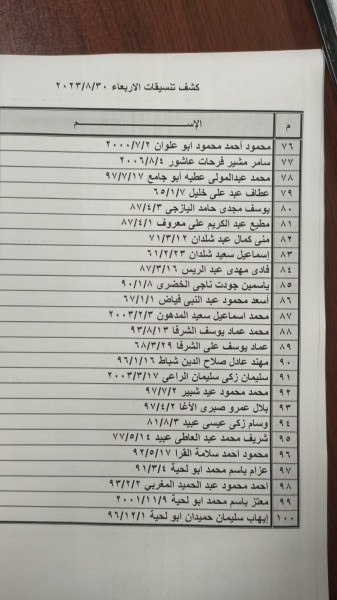 كشف تنسيقات الاربعاء ٢٠٢٣/٨/٣٠
م الإســـم
٧٦ محمود أحمد محمود ابو علوان ٢٠٠٠/٧/٢
٧٧ سامر مشير فرحات عاشور ٢٠٠٦/٨/٤
٧٨ محمد عبدالمولى عطيه أبو جامع ٩٧/٧/١٧
٧٩ عطاف عبد على خليل ٦٥/١/٧
٨٠ يوسف مجدى حامد اليازجى ٨٧/٤/٣
٨١ مطيع عبد الكريم على معروف ٨٧/٤/١
٨٢ منى كمال عبد شلدان ٧١/٣/١٢
٨٣ إسماعيل سعيد شلدان ٦١/٢/٢٣
٨٤ فادى مهدى عبد الريس ٨٧/٣/١٦
٨٥ ياسمين جودت ناجى الخضرى ٩٠/١/٨
٨٦ أسعد محمود عبد النبى فياض ٦٧/١/١
٨٧ محمد اسماعيل سعيد المدهون ٢٠٠٣/٢/٣
٨٨ محمد عماد يوسف الشرفا ٩٣/٨/١٣
٨٩ عماد يوسف على الشرفا ٦٨/٣/٢٩
٩٠ مهند عادل صلاح الدين شباط ٩٦/١/١٦
٩١ سليمان زكى سليمان الراعى ٢٠٠٣/٣/١٧
٩٢ محمد محمود عيد شبير ٩٧/٧/٢
٩٣ بلال عمرو صبرى الأغا ٩٧/٤/٢
٩٤ وسام زكى عيسى عبيد ٨١/٨/٣
٩٥ شريف محمد عبد العاطى عبيد ٧٧/٥/١٤
٩٦ محمود احمد سلامة القرا ٩٢/٥/١٧
٩٧ عزام باسم محمد ابو لحية ٩١/٣/٤
٩٨ احمد محمود عبد الحميد المغربي ٩٣/٢/٢
٩٩ معتز باسم محمد ابو لحية ٢٠٠١/١١/٩
١٠٠ إيهاب سليمان حميدان ابو لحية ٩٦/١٢/١